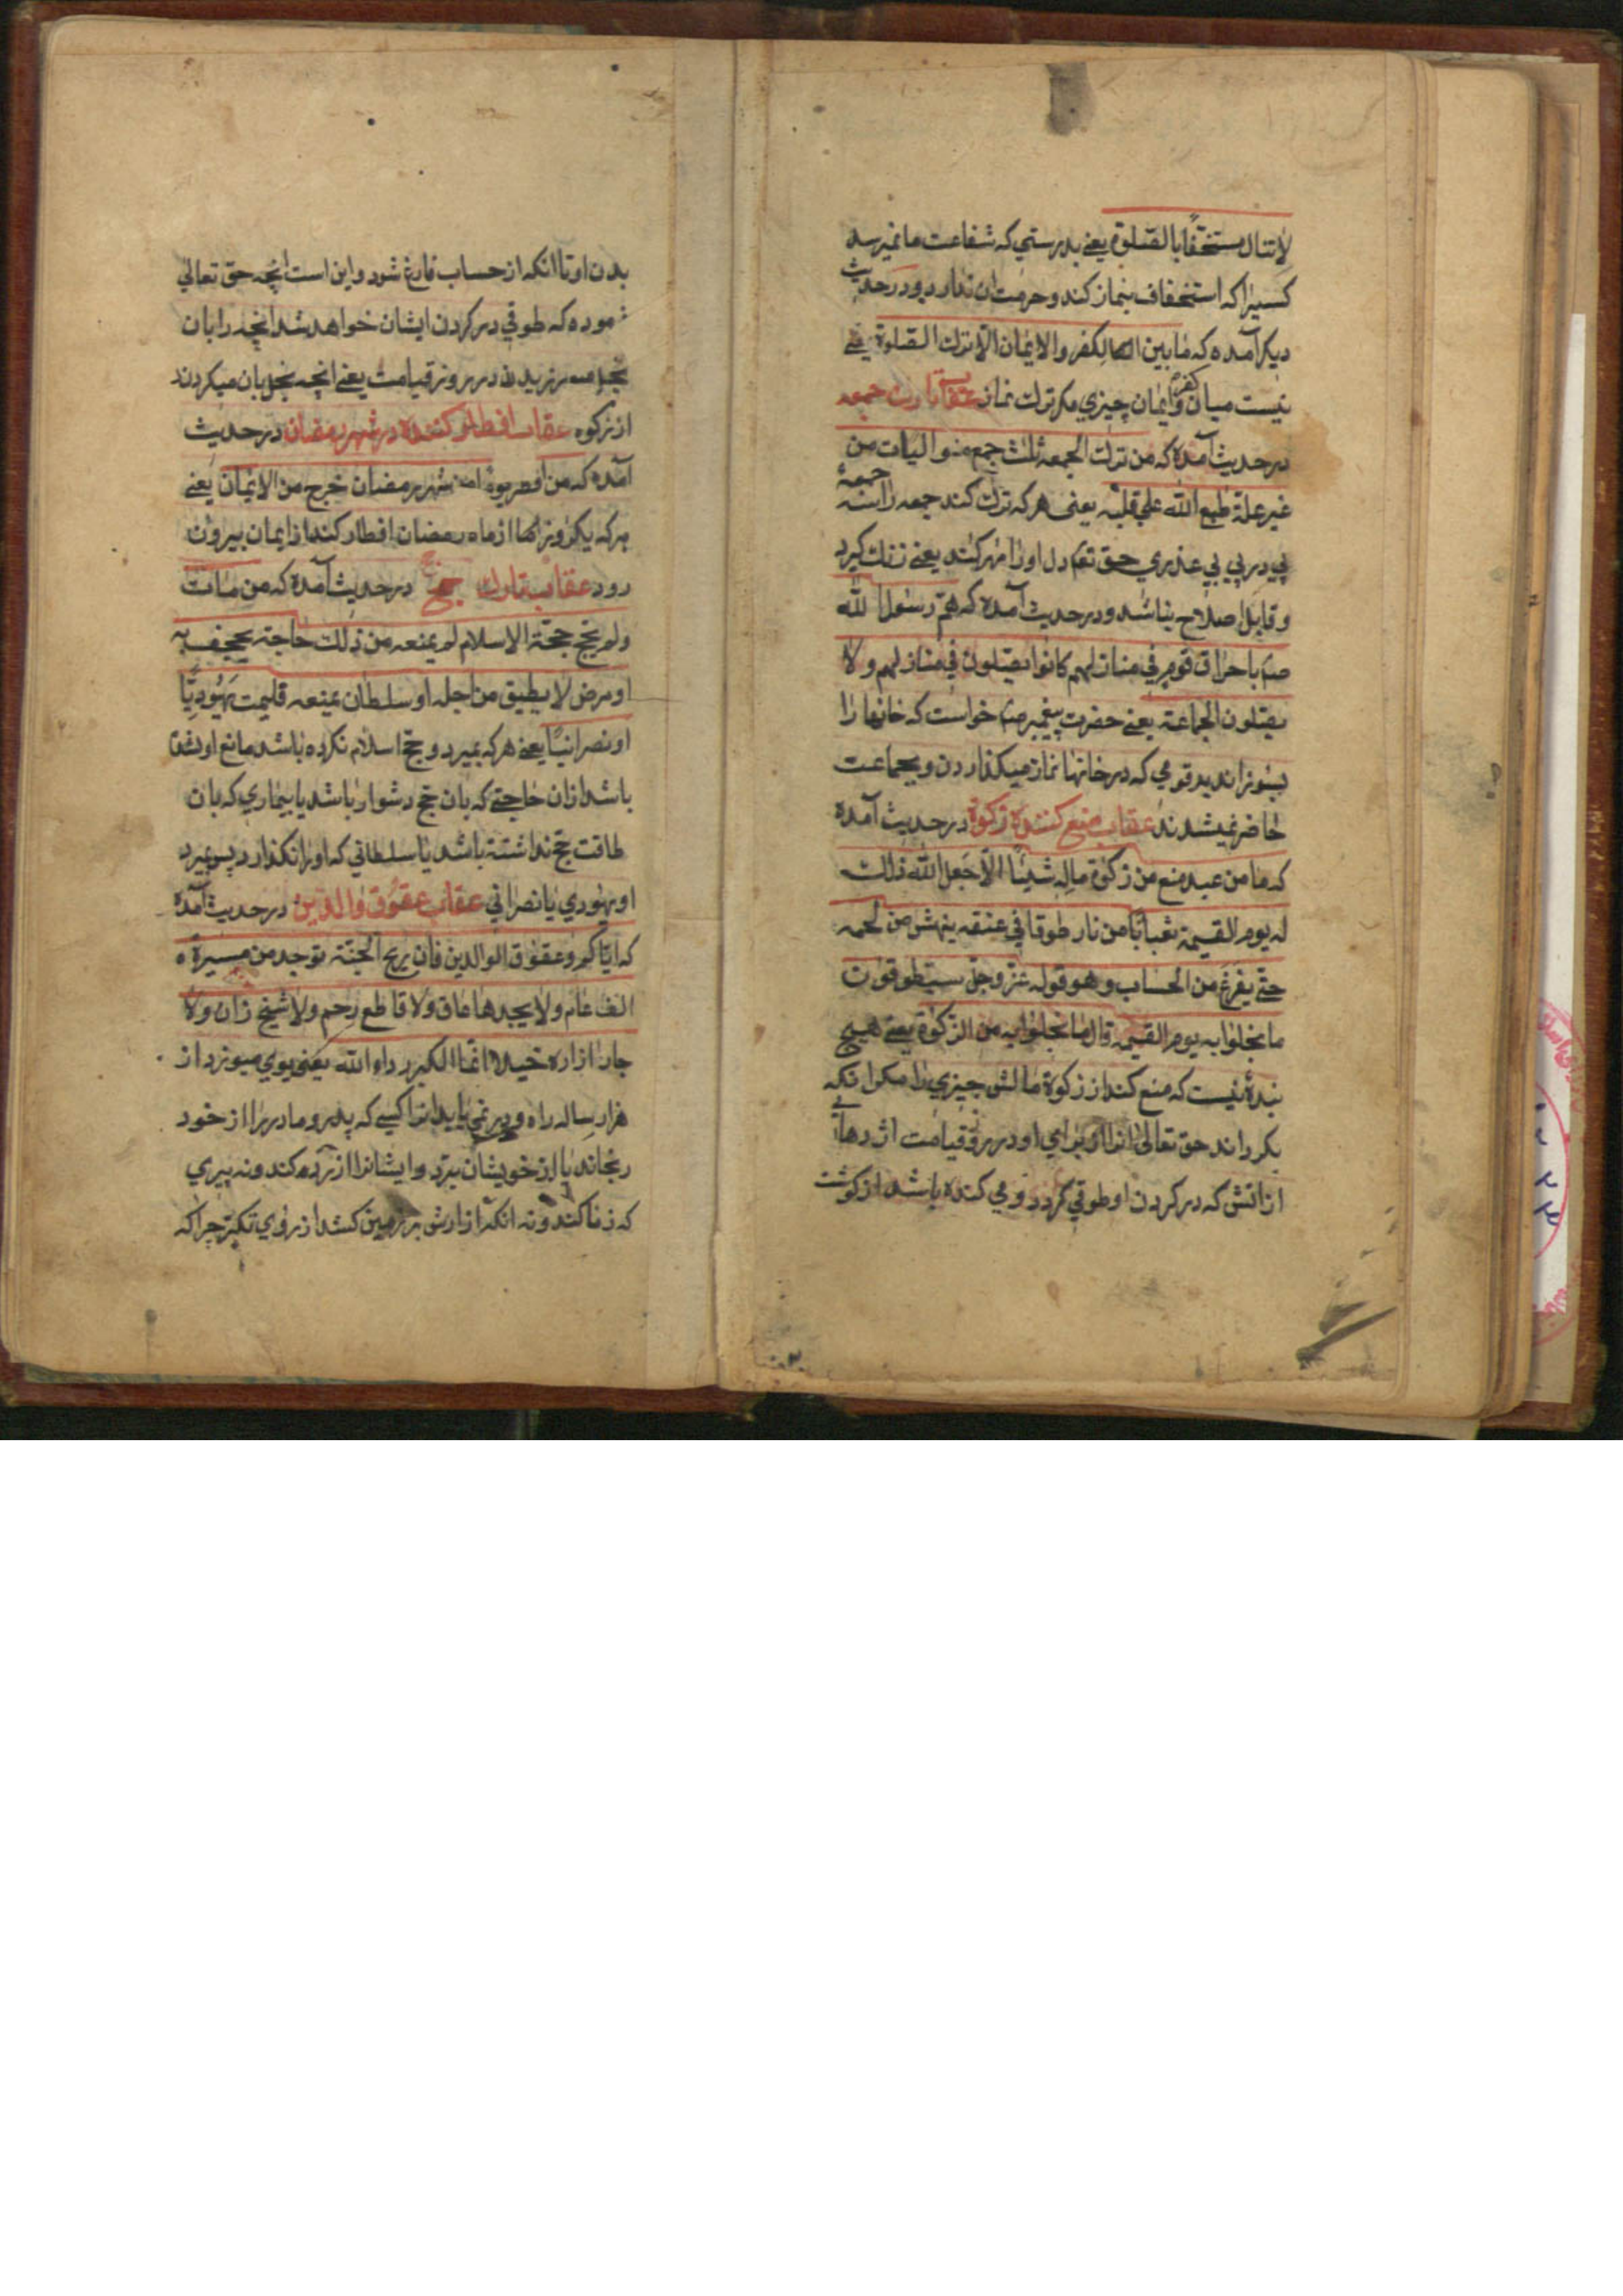 لاتنال مستخفا بالصلوة یعنے بدرستي که شفاعت ما نمیرسد
کسیرا که استخفاف بنماز کند و حرمت ان ندارد و در حدیث
دیکر آمده که ما بین الکفر والایمان الا ترک الصلوة یعنے
نیست میان کفر و ایمان چیزي مکر ترک نماز عقاب تارک جمعه
در حدیث آمده که من ترک الجمعه ثلث جمع متوالیات من
غیر علة طبع الله علی قلبه یعنی هر که ترک کند جمعه را سه جمعهٔ
پي در پي بي عذري حق تع دل او را مهر کند یعنے زنک کیرد
و قابل اصلاح نباشد و در حدیث آمده که هم رسول الله
ص باحراق قوم في منازلهم کانوا یصلون في منازلهم ولا
یصلون الجماعة یعنے حضرت پیغمبر ص خواست که خانها را
بسوزاند بر قومي که در خانها نماز میکذاردن و بجماعت
حاضر نمیشدند عقاب منع کننده زکوة در حدیث آمده
که ما من عبد منع من زکوة ماله شیئا الا جعل الله ذلک
له یوم القیمة ثعبانا من نار طوقا في عنقه ینهش من لحمه
حتے یفرغ من الحساب وهو قوله عز وجل سیطوقون
ما بخلوا به یوم القیمه قال ما بخلوا به من الزکوة یعنے هیچ
بندهٔ نیست که منع کند از زکوة مالش چیزي را مکر انکه
بکرداند حق تعالی انرا از براي او در روز قیامت اژدهائے
از اتش که در کردن او طوقي کردد و مي کنده باشد از کوشت
بدن او تا انکه از حساب فارغ شود و این است انچه حق تعالي
فرموده که طوقي در کردن ایشان خواهد شد انچه را بان
بخل میورزیدند در روز قیامت یعنے انچه بخل بان میکردند
از زکوه عقاب افطار کننده در شهر رمضان در حدیث
آمده که من افطر یوما من شهر رمضان خرج من الایمان یعنے
هر که یکروز انها از ماه رمضان افطار کند از ایمان بیرون
رود عقاب تارک حج در حدیث آمده که من مات
ولم یحج حجة الاسلام لم یمنعه من ذلک حاجة یجحف به
او مرض لا یطیق من اجله او سلطان یمنعه فلیمت یهودیا
او نصرانیا یعنے هر که بمیرد و حج اسلام نکرده باشد مانع او نشده
باشد از ان حاجتے که بان حج دشوار باشد یا بیماري که بان
طاقت حج نداشته باشد یا سلطاني که او را نکذارد پس بمیرد
او یهودي یا نصراني عقاب عقوق والدین در حدیث آمده
که ایاکم وعقوق الوالدین فان ریح الجنة توجد من مسیرة
الف عام ولا یجدها عاق ولا قاطع رحم ولا شیخ زان ولا
جار ازاره خیلاء انما الکبر رداء الله یعنی بوي میوزد از
هزار ساله راه و در نمي یابد انرا کسے که پدر و مادر را از خود
رنجاند یا از خویشان ببرد و ایشانرا ازرده کند و نه پیري
که زنا کند و نه انکه ازارش بر زمین کشد از روي تکبر چرا که